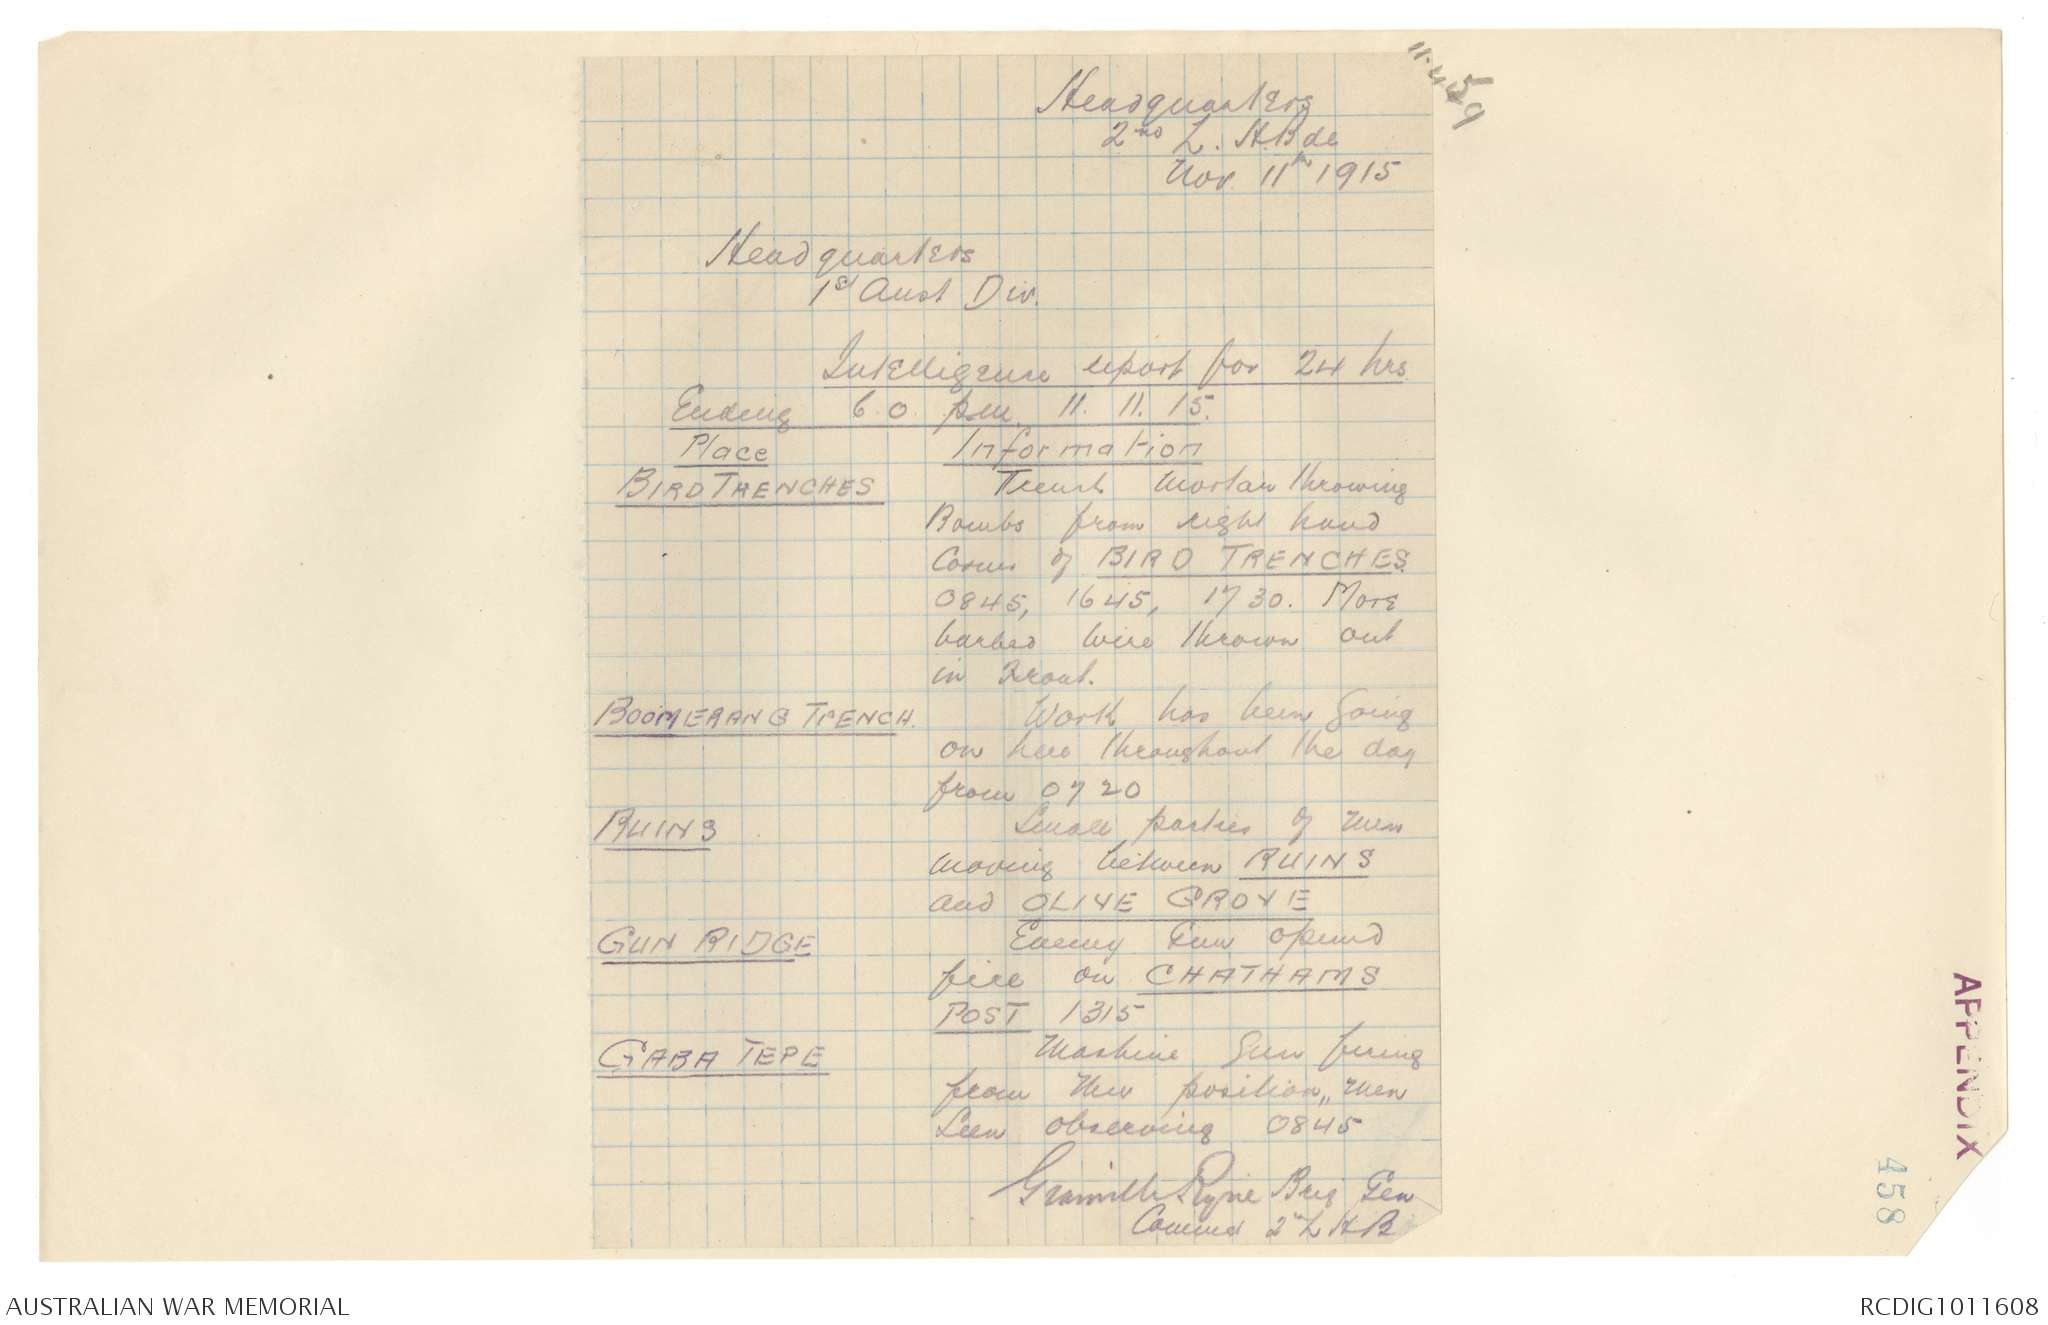 Headquarters
2nd L. H. Bde
Nov. 11th 1915
Headquarters
1st Aust Div.
Intelligence report for 24 hrs
Ending 6.0. pm. 11. 11. 15.
Place Information
BIRD TRENCHES Trench Mortar throwing
Bombs from right hand
Corner of BIRD TRENCHES.
0845, 1645, 1730. More
barbed wire thrown out
in Front.
BOOMERANG TRENCH. Work has been going
on here throughout the day
from 0720
RUINS Small parties of men
moving between RUINS
and OLIVE GROVE
GUN RIDGE Enemy Gun opened
fire on CHATHAMS
POST 1315
GABA TEPE Machine Gun firing
from New position,, men
Seen observing 0845
Granville Ryrie Brig Gen
Commd 2nd L H B
APPENDIX
458
AUSTRALIAN WAR MEMORIAL
RCDIG1011608